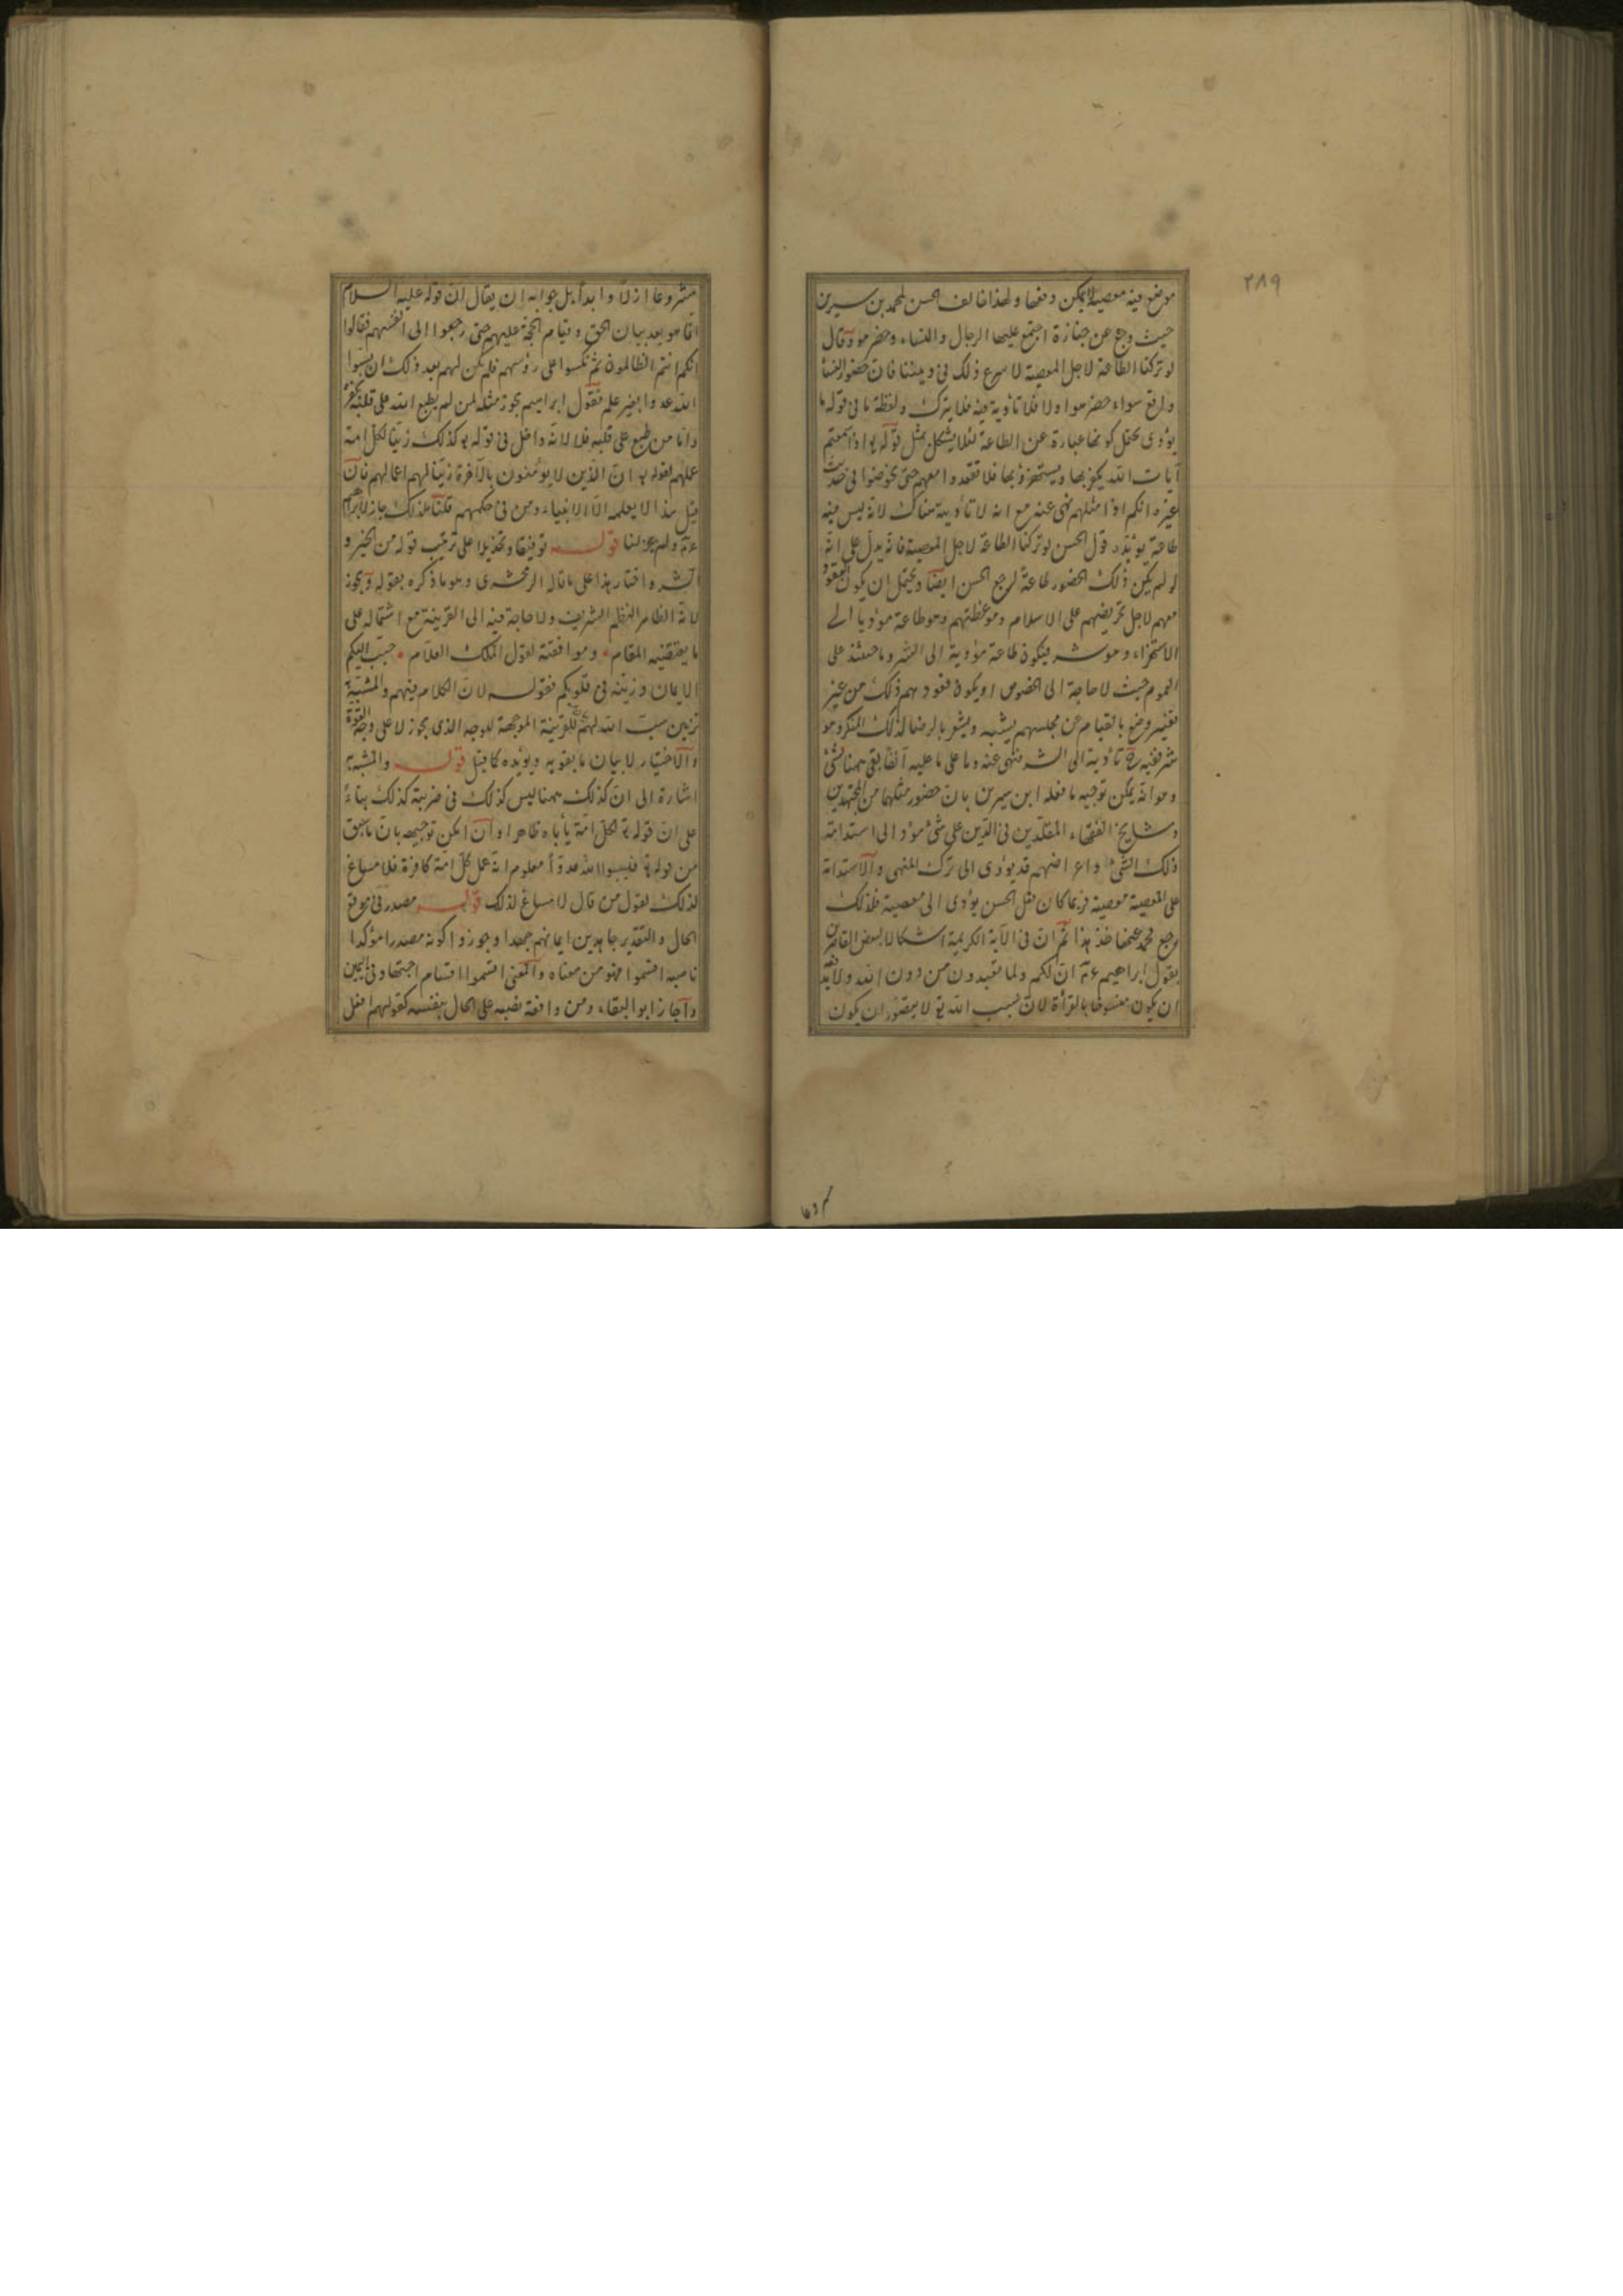 ٢٨٩
موضع فيه معصية لا يمكن دفعها ولهذا خالف الحسن لمحمد بن سيرين
حيث رجع عن جنازة اجتمع عليها الرجال والنساء وحضر هو وقال
لو تركنا الطاعة لاجل المعصية لاسرع ذلك في ديننا فان حضور النساء
واقع سواء حضر هو او لا فلا تأدية فيه فلا يترك ولفظة ما في قوله ما
يؤدى يحتمل كونها عبارة عن الطاعة لئلا يشكل بمثل قوله تع اذا سمعتم
آيات الله يكفر بها ويستهزؤ بها فلا تقعدوا معهم حتى يخوضوا في حديث
غيره انكم اذا مثلهم نهى عنه مع انه لا تأدية هناك لانه ليس فيه
طاعة يؤيده قول الحسن لو تركنا الطاعة لاجل المعصية فانه يدل على انه
لو لم يكن ذلك الحضور طاعة لرجع الحسن ايضا ويحتمل ان يكون القعود
معهم لاجل تحريضهم على الاسلام وموعظتهم وهو طاعة مؤديا الى
الاستهزاء وهو شر فيكون طاعة مؤدية الى الشر وما حينئذ على
العموم حيث لا حاجة الى الخصوص او يكون قعودهم ذلك من غير
تغيير وضع بالقيام عن مجلسهم يشبه ويشعر بالرضا لذلك المنكر وهو
شر ففيه ح تأدية الى الشر فنهى عنه وما على ما عليه آنفا بقى ههنا شئ
وهو انه يمكن توجيه ما فعله ابن سيرين بان حضور مثلهما من المجتهدين
ومشايخ الفقهاء المقلدين في الدين على شئ مؤد الى استدامة
ذلك الشئ واعراضهم قد يؤدى الى ترك المنهى والاستدامة
على المعصية معصية فربما كان فعل الحسن يؤدى الى معصية فلذلك
رجع محمد عنها خذ هذا ثم ان في الآية الكريمة اشكالا لبعض القاصرين
بقول ابراهيم عم اف لكم ولما تعبدون من دون الله ولا بد فيه
ان يكون منسوخا بالقرأة لان تسبب الله تع لا يتصور ان يكون
مشروعا ازلا وابدا بل جوابه ان يقال ان قوله عليه السلام
انما هو بعد بيان الحق وقيام الحجة عليهم حتى رجعوا الى انفسهم فقالوا
انكم انتم الظالمون ثم نكسوا على رؤسهم فلم يكن لهم بعد ذلك ان يسبوا
الله عدوا بغير علم فقول ابراهيم يجوز مثله لمن لم يطبع الله على قلبه بكفره
واما من طبع على قلبه فلا لانه داخل في قوله تع كذلك زينا لكل امة
عملهم لقوله تع ان الذين لا يؤمنون بالآخرة زينا لهم اعمالهم فان
قيل هذا لا يعلمه الا الانبياء ومن في حكمهم قلنا فلذلك جاز لابراهيم
عم ولم يجز لنا قوله توفيقا وتخذيلا على ترتيب قوله من الخير و
الشر واختار هذا على ما قاله الزمخشرى وهو ما ذكره بقوله ويجوز
لانه الظاهر النظم الشريف ولا حاجة فيه الى القرينة مع اشتماله على
ما يقتضيه المقام وموافقته لقول الملك العلام حبب اليكم
الايمان وزينه في قلوبكم فقوله لان الكلام فيهم والمشبه به
تزيين سب الله لهم للقرينة الموجهة للوجه الذى يجوز لا على وجه القوة
والاختيار لا بيان ما يقويه ويؤيده كما قيل قوله والمشبه به
اشارة الى ان كذلك ههنا ليس كذلك في ضربته كذلك بناء
على ان قوله تع لكل امة يأباه ظاهرا وان امكن توجيهه بان ما سبق
من قوله تع فيسبوا الله عدوا معلوم انه عمل كل امة كافرة فلا مساغ
لذلك لقول من قال لا مساغ لذلك قوله مصدر في موقع
الحال والتقدير جاهدين ايمانهم جهدا وجوزوا كونه مصدرا مؤكدا
ناصبه اقسموا فهو من معناه والمعنى اقسموا اقسام اجتهاد في اليمين
واجاز ابو البقاء ومن وافقه نصبه على الحال بنفسه كقولهم افعل